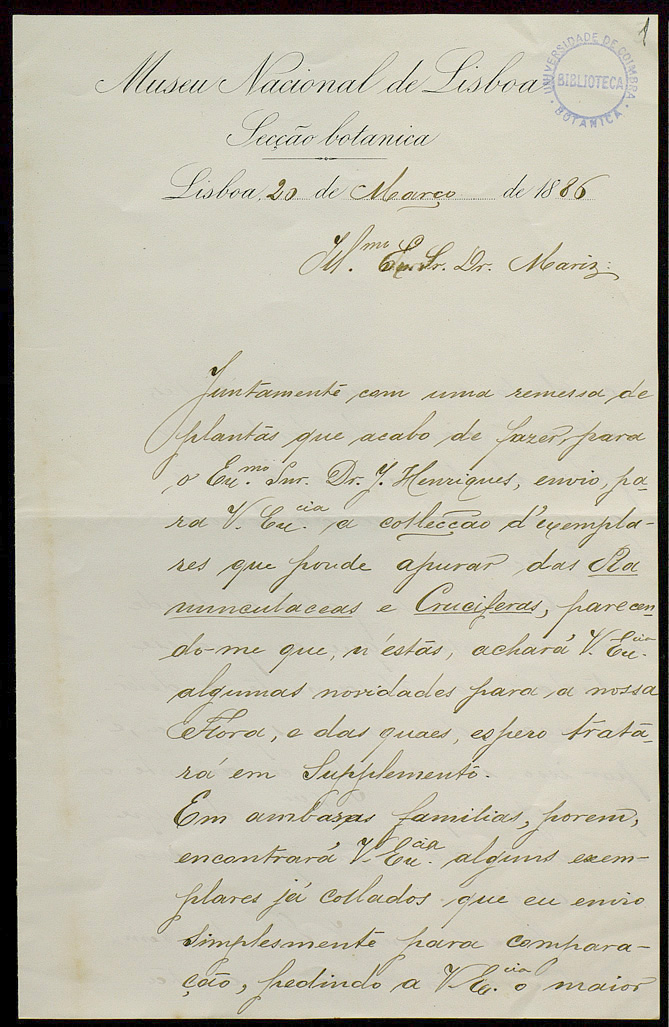 1
UNIVERSIDADE DE COIMBRA
BIBLIOTECA
BOTANICA
Museu Nacional de Lisboa
Secção botanica
Lisboa, 20 de Março de 1886
Ill.mo Ex. Sr. Dr. Mariz:
Juntamente com uma remessa de
plantas que acabo de fazer, para
o Ex.mo Snr. Dr. J. Henriques, envio, pa-
ra V. Ex.cia a collecção d'exempla-
res que poude apurar das Ra
nunculaceas e Cruciferas, parecen-
do-me que, n'estas, achará V. Ex.cia
algumas novidades para a nossa
Flora, e das quaes, espero tratá-
rá em Supplemento.
Em ambas familias, porem,
encontrará V. Ex.cia alguns exem-
plares já collados que eu envio
simplesmente para compara-
ção, pedindo a V. E.cia o maior